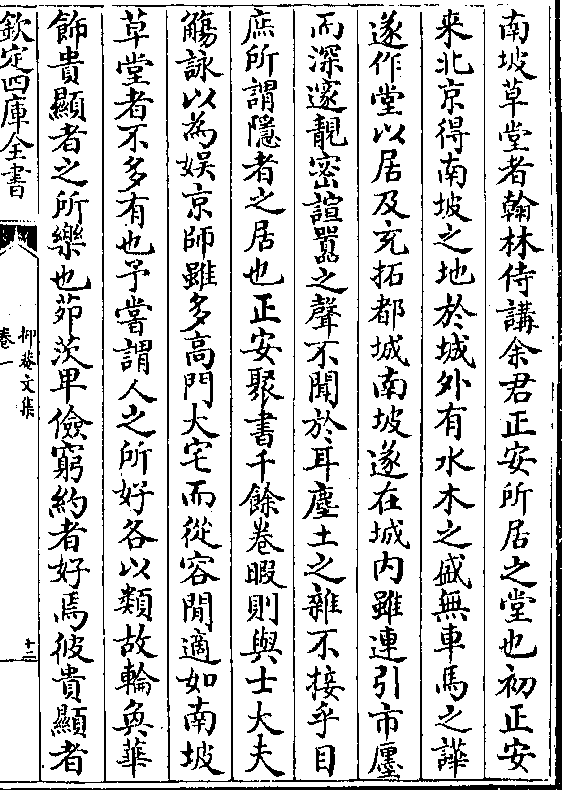 南坡草堂者翰林侍講余君正安所居之堂也初正安
来北京得南坡之地於城外有水木之盛無車馬之譁
遂作堂以居及充拓都城南坡遂在城内雖連引市廛
而深邃靚密諠囂之聲不聞於耳塵土之雜不接乎目
庶所謂隱者之居也正安聚書千餘卷暇則與士大夫
觴詠以為娱京師雖多高門大宅而從容閒適如南坡
草堂者不多有也予嘗謂人之所好各以類故輪奐華
飾貴顯者之所樂也茆茨卑儉窮約者好焉彼貴顯者
欽定四庫全書
抑菴文集
卷一
十三